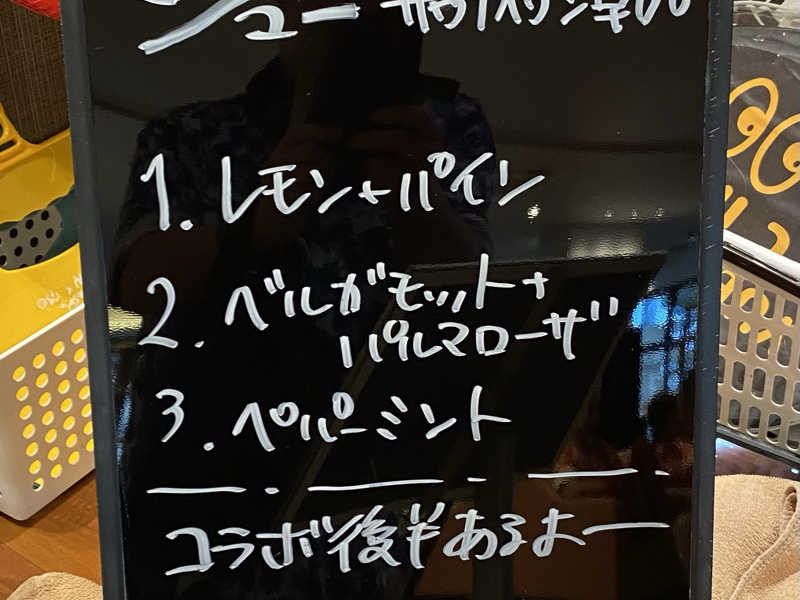 1. レモン+パイン
2. ベルガモット+
パルマローザ
3. ペパーミント
コラボ後半あるよー